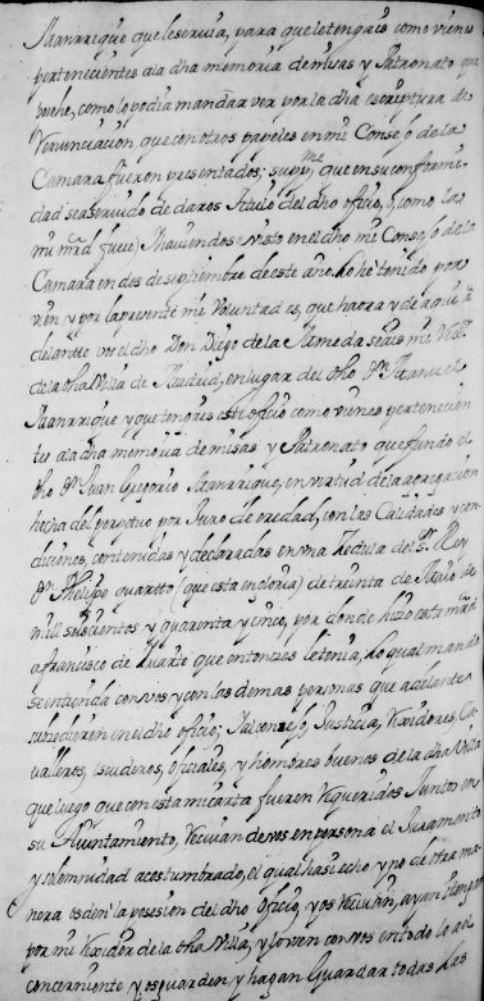 Manrrique que le seruia, para que le tengais como vienes
pertenecientes ala dha memoria de misas y Patronato que
posehe, como lo podia mandar ver por la dha escriptura de
Renunciacion, que con otros papeles en mi Consejo de la
Camara fueron presentados; supp.me que en su conformi-
dad sea seruido de daros Titulo del dho oficio, ò como la
mi mrd fuese) Y hauiendose visto en el dho mi Consejo de la
Camara en dos de septiembre de este año. Lo he tenido por
vien y por la presente mi Voluntad es, que haora y de aqui à
delante vos el dho Don Diego de la Armeda seais mi Rexr.
de la dha Villa de Madrid, en lugar del dho Dn Manuel
Manrrique y que tengais este oficio como vienes pertenecien
tes ala dha memoria de misas y Patronato que fundo el
dho Dn Juan Gregorio Manrrique, en virtud de la agregacion
hecha del perpetuo por Juro de eredad, con las Calidades y con-
diciones, contenidas y declaradas en vna Zedula del Sr. Rey
Dn Phelipe quartto (que esta en gloria) de treinta de Maio de
mill seiscientos y quarenta y cinco, por donde hizo esta mrd
a francisco de Yuarte que entonzes le tenia, Lo qual mando
se entienda con vos y con las demas personas que adelante
subzedieren en el dho oficio; Y al consejo, Justicia, Rexidores, Ca-
ualleros, escuderos, oficiales, y hombres buenos de la dha Villa
que luego que con esta mi carta fueren Requeridos Juntos en
su Aiuntamiento, Reciuan de vos en persona el Juramento
y solemnidad acostumbrado, el qual hasi echo y no de otra ma-
nera os den la posesion del dho Oficio, y os Reciuan, ayan y tengan
por mi Rexidor de la dha Villa, y lo vsen con vos en todo lo a el
concerniente y os guarden y hagan Guardar todas las